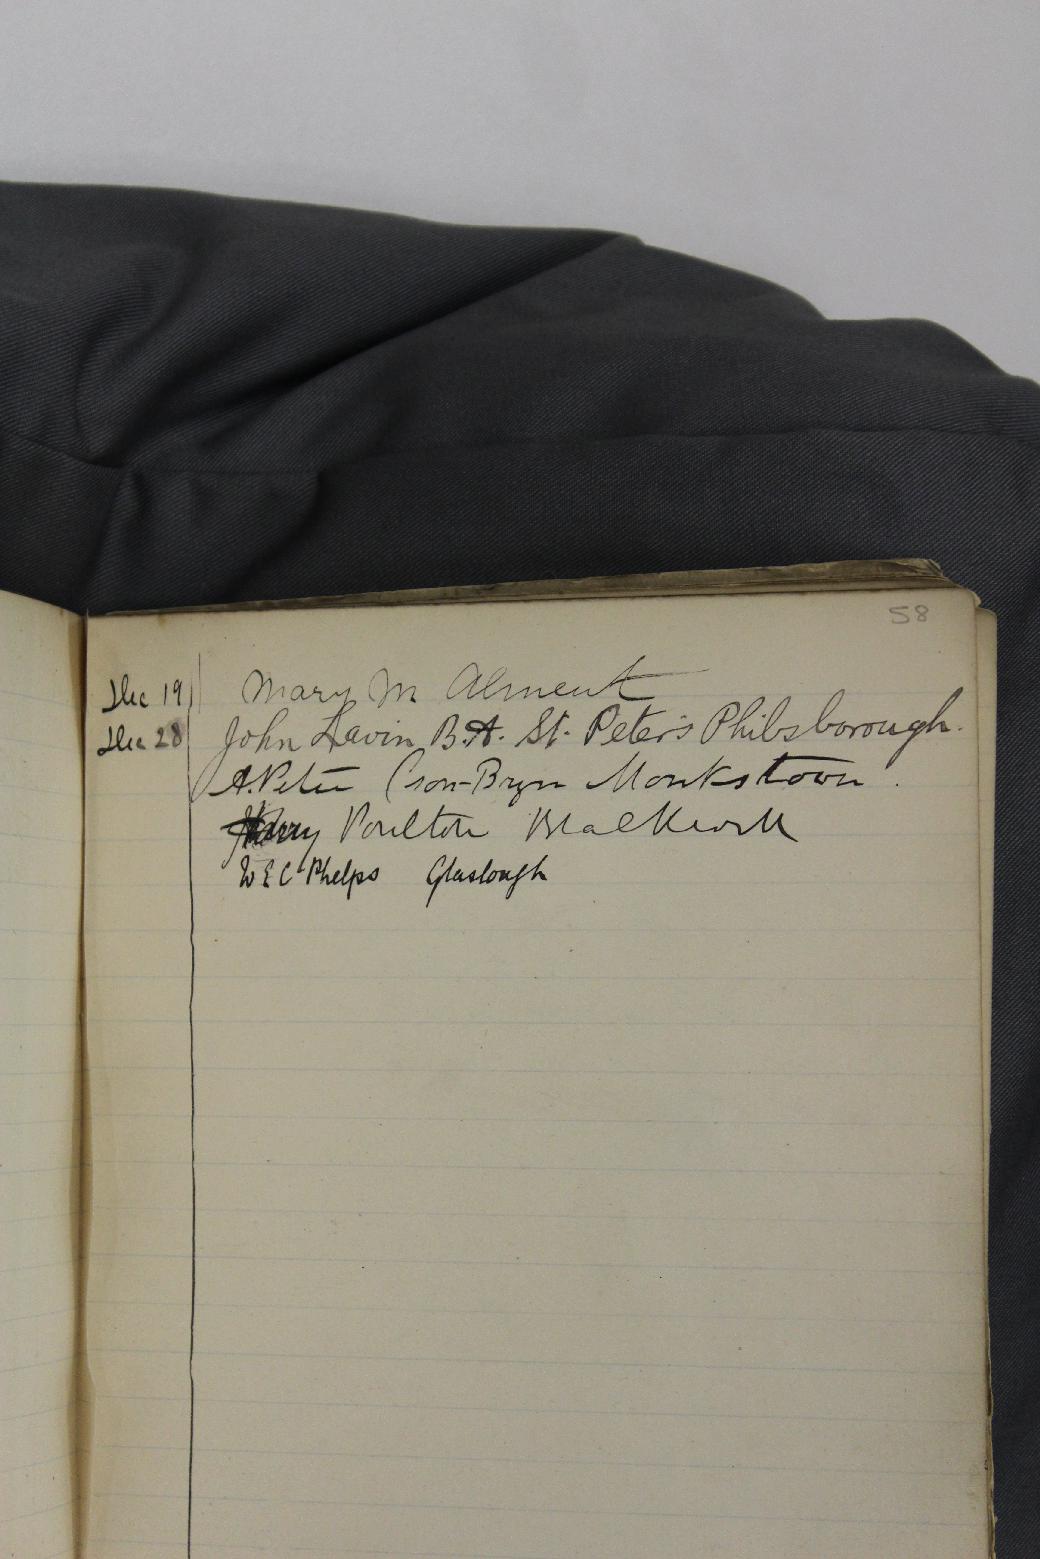 58
Dec 19 Mary M Alment
Dec 28 John Lavin B.A. St. Peter's Phibsborough.
A. Peter Cson-Bryn Monkstown.
Harry Poulton
W E C Phelps Glaslough